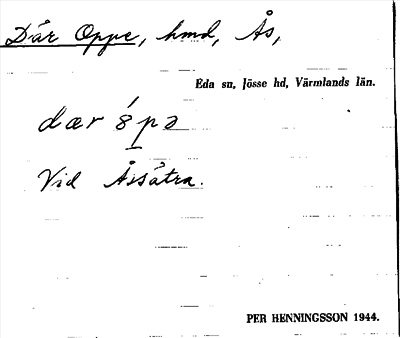 Där Oppe, hmd, Ås,
Eda sn, Jösse hd, Värmlands län.
dær 8́pə
Vid Åssätra.
PER HENNINGSSON 1944.